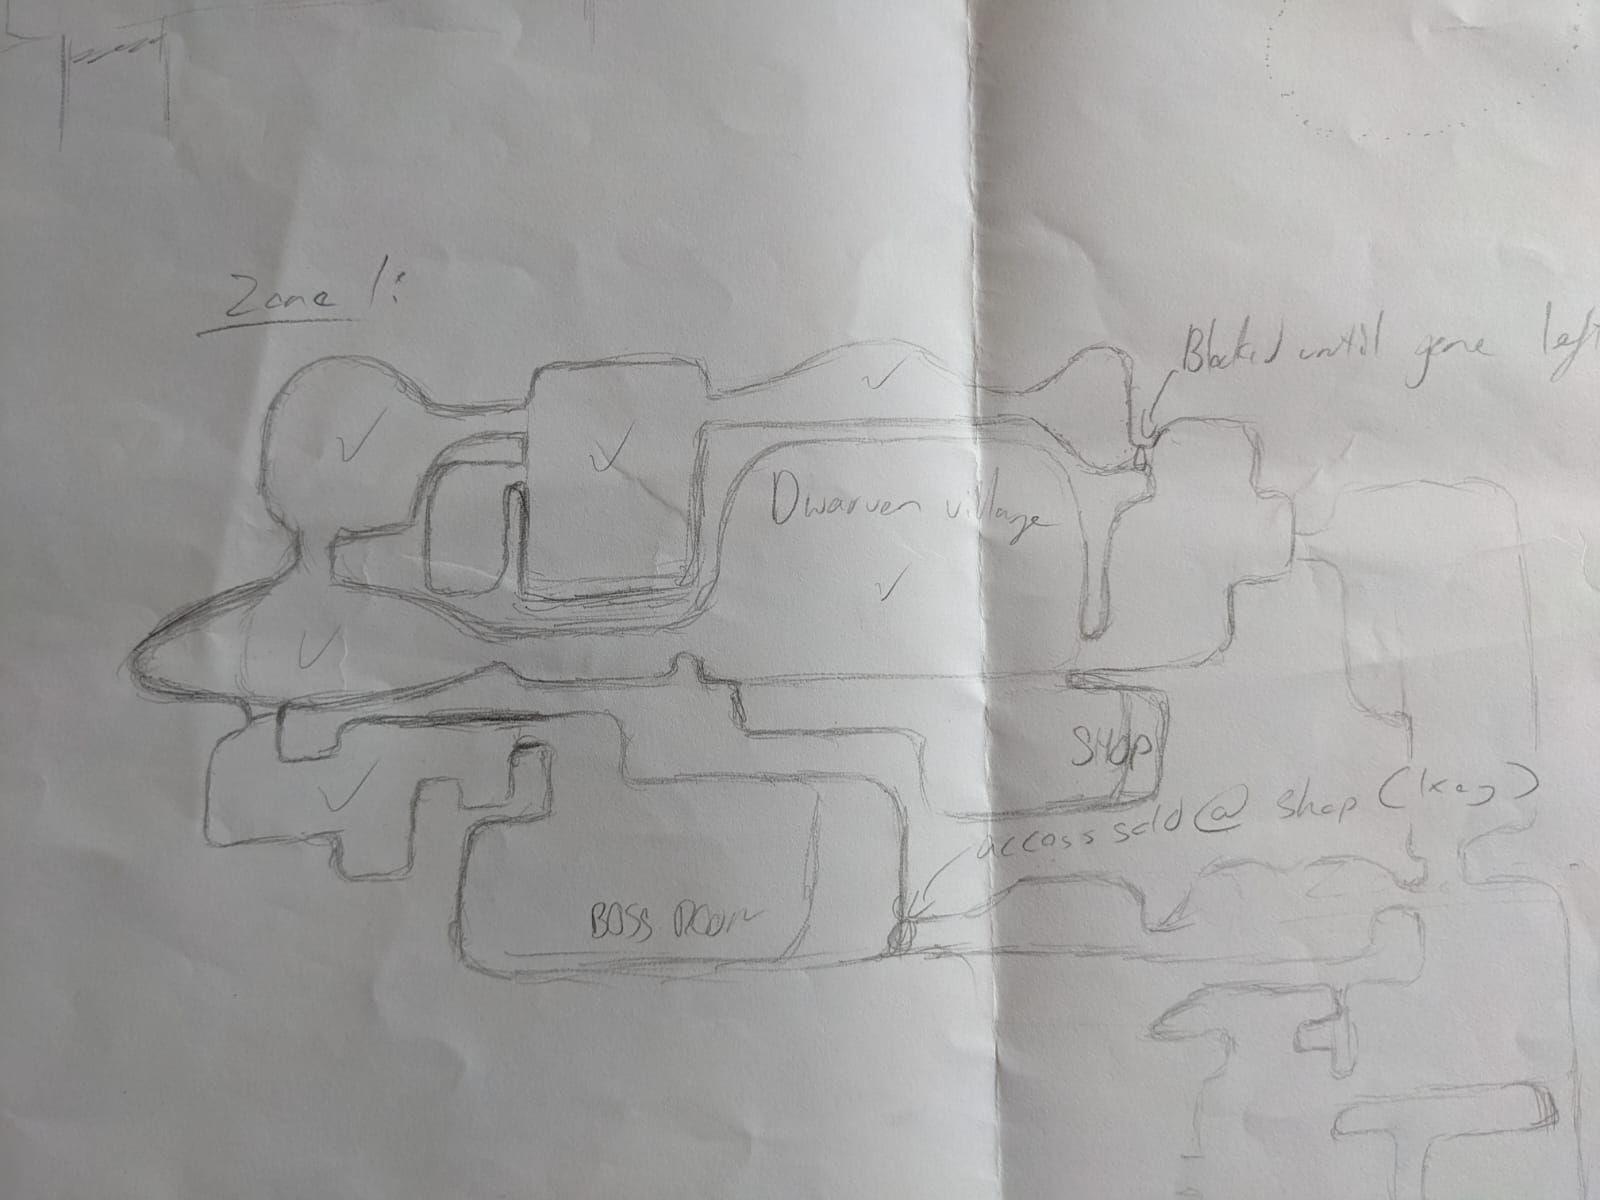 Zone 1:
Blocked until gone left
Dwarven village
SHOP
access sold @ shop (1key)
BOSS ROOM